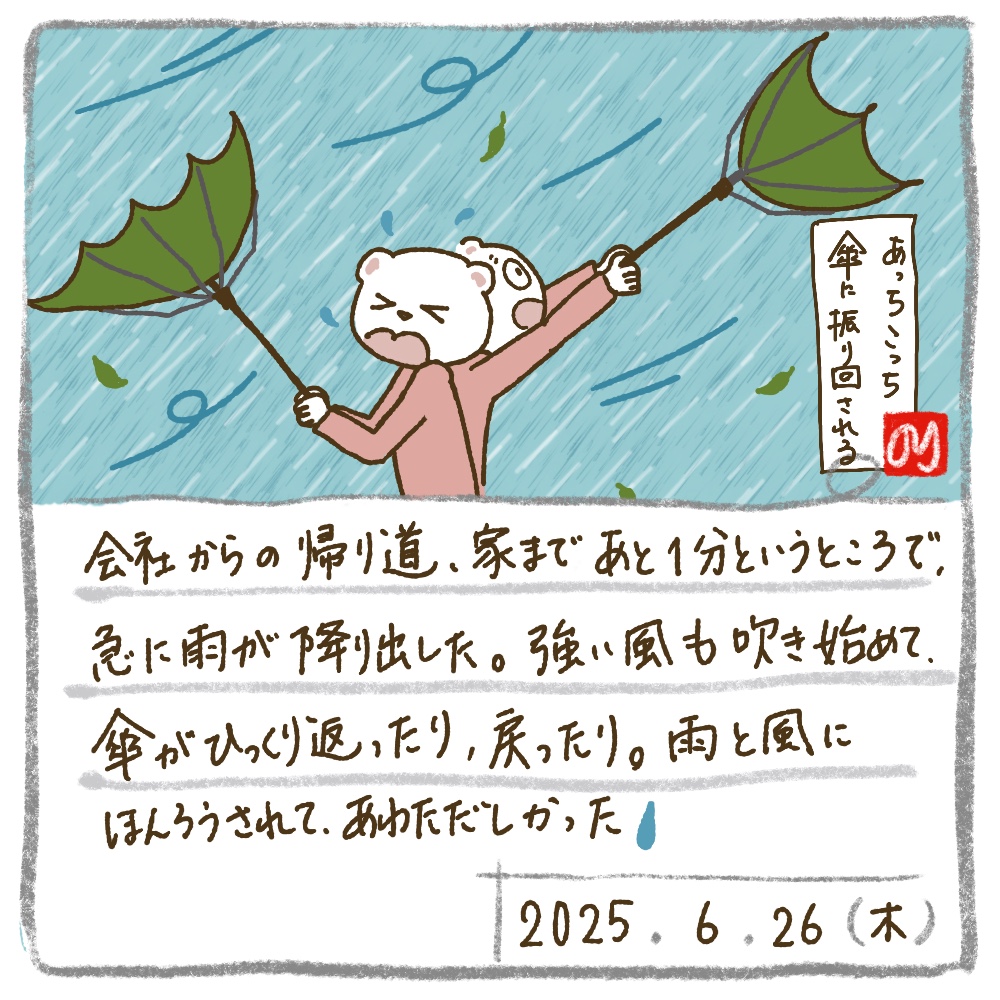 あっちこっち
傘に振り回される
のり
会社からの帰り道、家まであと1分というところで、
急に雨が降り出した。強い風も吹き始めて、
傘がひっくり返ったり、戻ったり。雨と風に
ほんろうされて、あわただしかった
2025.6.26(木)